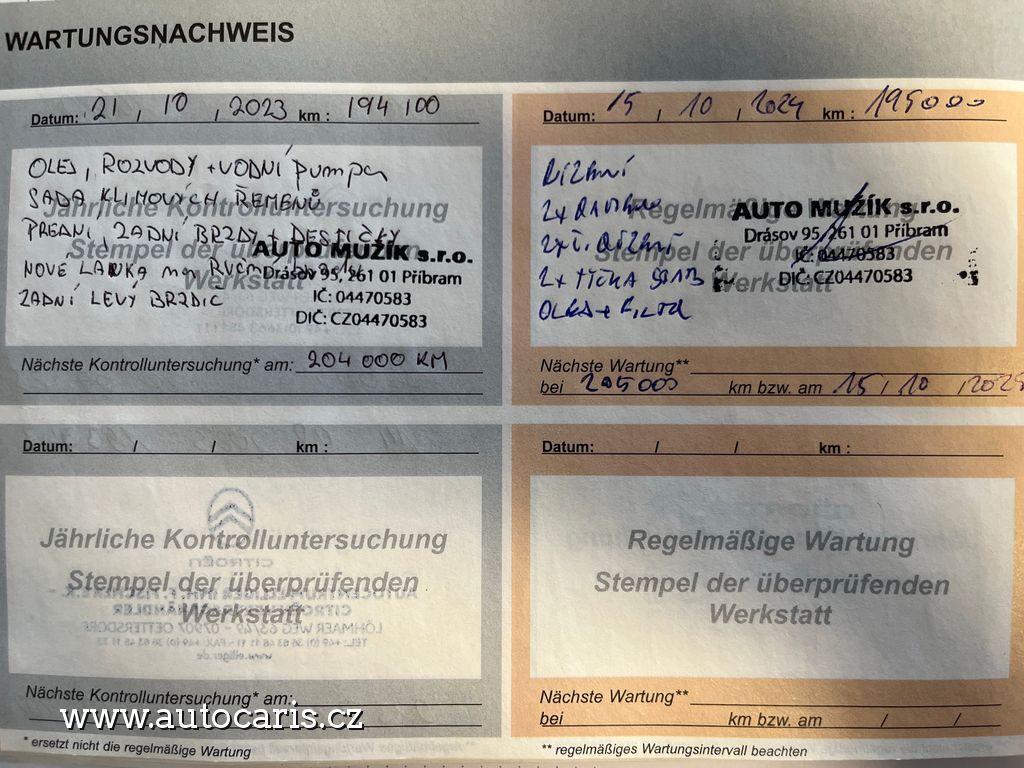 WARTUNGSNACHWEIS
Datum: 21 / 10 / 2023 km : 194 100
OLEJ, ROZVODY + VODNÍ pumpa
SADA KLIMOVÝCH ŘEMENŮ
Jährliche Kontrolluntersuchung
PŘEDNÍ, ZADNÍ BRZDY + DESTIČKY
Stempel der überprüfenden
Werkstatt
NOVÉ LANKA
ZADNÍ LEVÝ BRZDIC
AUTO MUŽÍK s.r.o.
Drásov 95, 261 01 Příbram
IČ: 04470583
DIČ: CZ04470583
Nächste Kontrolluntersuchung* am: 204 000 KM
Datum: 15 / 10 / 2024 km : 195000
Regelmäßige Wartung
Stempel der überprüfenden
Werkstatt
ŘÍZENÍ
2x
2x Č. ŘÍZENÍ
2x TYČKA STAB
OLEJ + FILTR
AUTO MUŽÍK s.r.o.
Drásov 95, 261 01 Příbram
IČ: 04470583
DIČ: CZ04470583
Nächste Wartung**
bei 205000 km bzw. am 15 / 10 / 2025
Datum: / / km :
Jährliche Kontrolluntersuchung
Stempel der überprüfenden
Werkstatt
Nächste Kontrolluntersuchung* am:
* ersetzt nicht die regelmäßige Wartung
Datum: / / km :
Regelmäßige Wartung
Stempel der überprüfenden
Werkstatt
Nächste Wartung**
bei km bzw. am / /
** regelmäßiges Wartungsintervall beachten
www.autocaris.cz